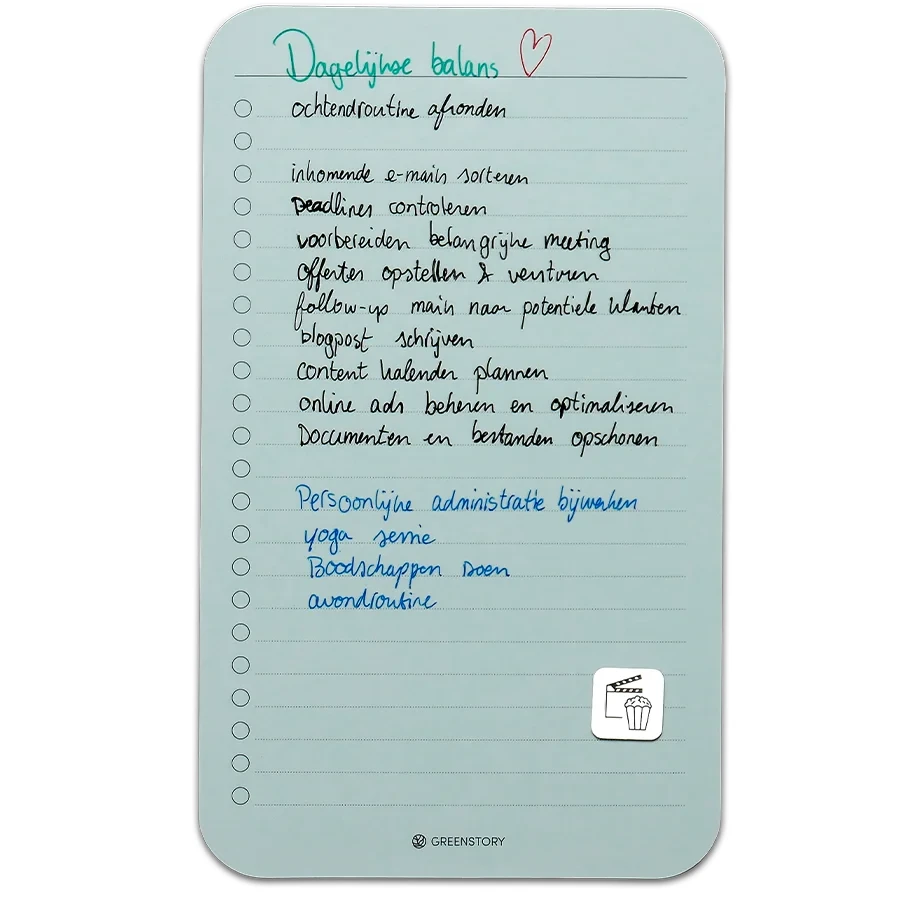 Dagelijkse balans
ochtendroutine afronden
inkomende e-mails sorteren
Deadlines controleren
voorbereiden belangrijke meeting
Offertes opstellen & versturen
follow-up mails naar potentiele klanten
blogpost schrijven
content kalender plannen
online ads beheren en optimaliseren
Documenten en bestanden opschonen
Persoonlijke administratie bijwerken
yoga sessie
Boodschappen doen
avondroutine
GREENSTORY